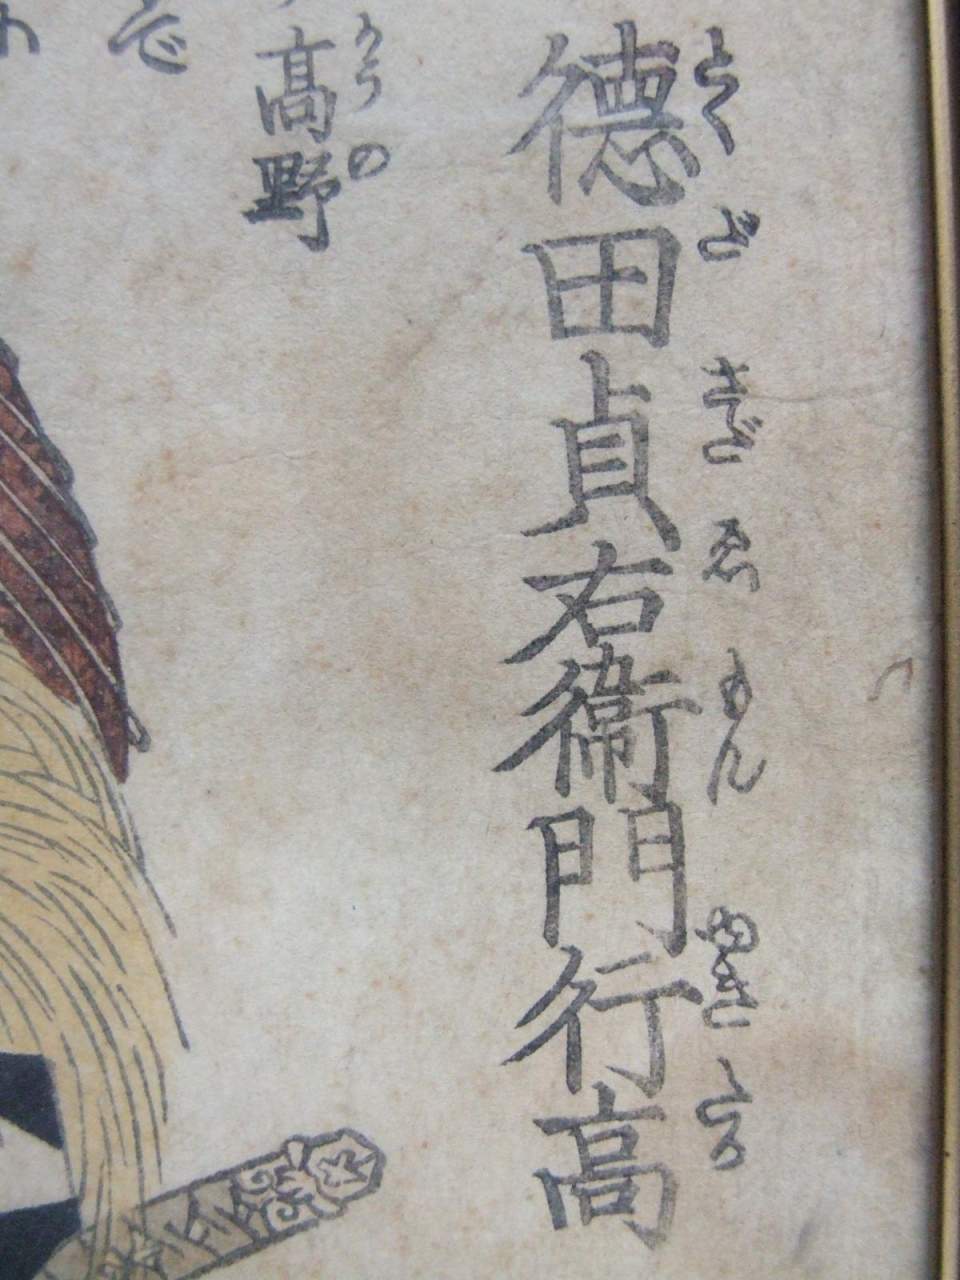 德田貞右衞門行高
とくださだゑもんゆきたか
髙野
かうの